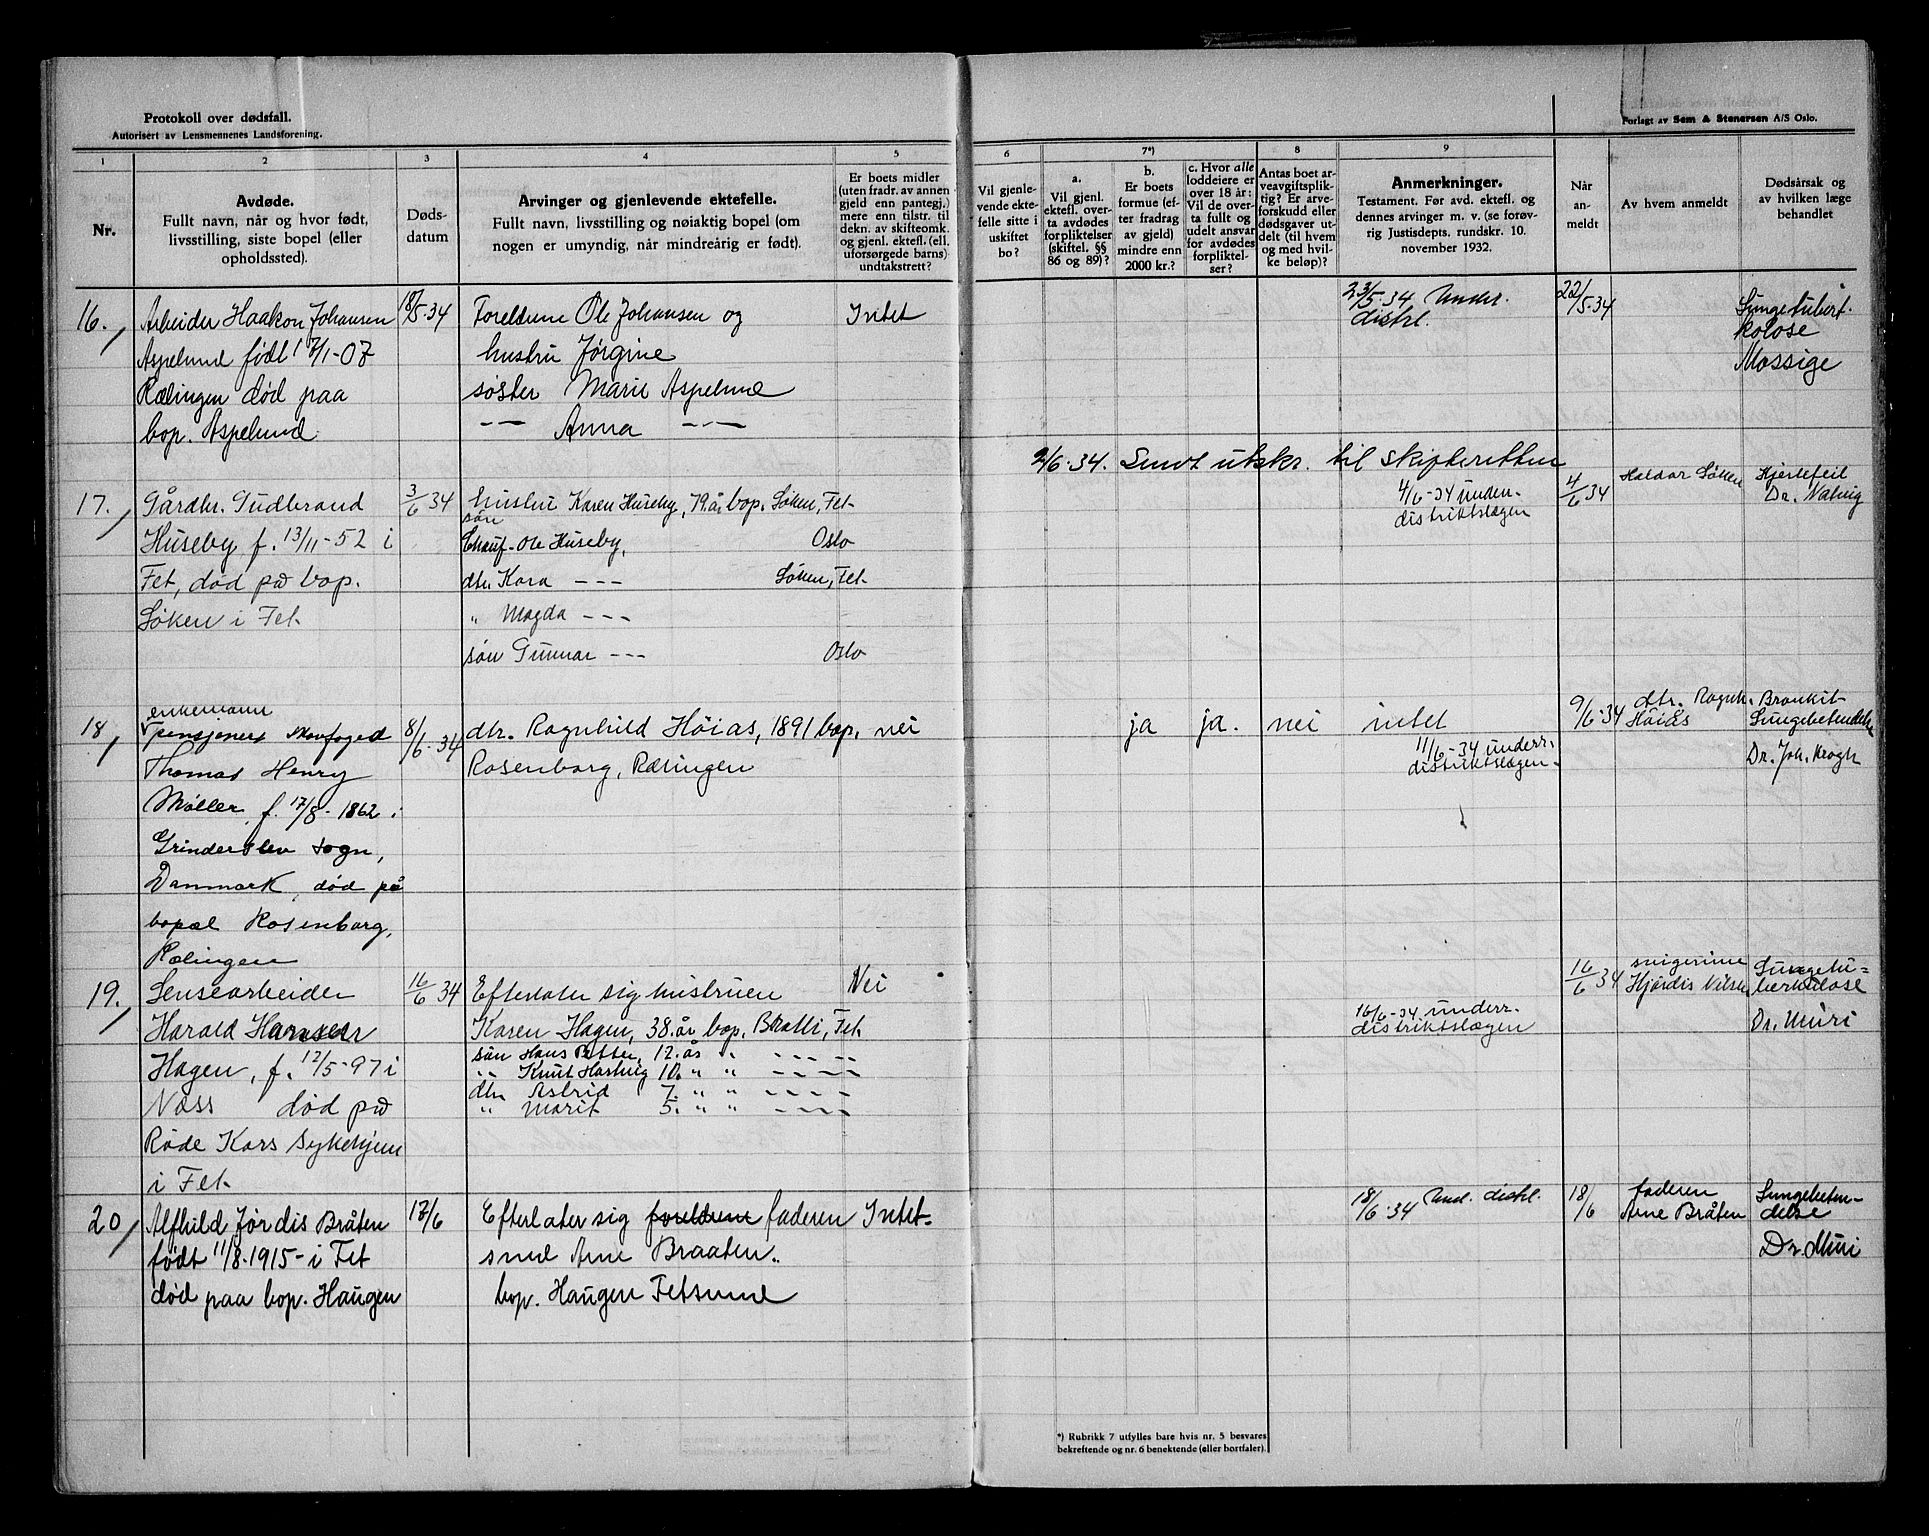 Protokoll over dødsfall.
Autorisert av Lensmennenes Landsforening.
Forlagt av Sem & Stenersen A/S Oslo.
1
2
3
4
5
6
7*)
8
9
Nr.
Avdøde.
Fullt navn, når og hvor født,
livsstilling, siste bopel (eller
opholdssted).
Døds-
datum
Arvinger og gjenlevende ektefelle.
Fullt navn, livsstilling og nøiaktig bopel (om
nogen er umyndig, når mindreårig er født).
Er boets midler
(uten fradr. av annen
gjeld enn pantegj.)
mere enn tilstr. til
dekn. av skifteomk.
og gjenl. ektef. (ell.
uforsørgede barns)
undtakstrett?
Vil gjenle-
vende ekte-
felle sitte i
uskiftet
bo?
a.
Vil gjenl.
ektef. over-
ta avdødes
forpliktelser
(skiftel. §§
86 og 89)?
b.
Er boets
formue (ef-
ter fradrag
av gjeld)
mindre enn
2000 kr.?
c. Hvor alle
loddeiere er
over 18 år:
Vil de over-
ta fullt og
udelt ansvar
for avdødes
forpliktel-
ser?
Antas boet ar-
veavgiftsplik-
tig? Er arve-
forskudd eller
dødsgaver ut-
delt (til hvem
og med hvil-
ke beløp)?
Anmerkninger.
Testament. Før avd. ektef. og
dennes arvinger m. v. (se forøv-
rig Justisdepts. rundskr. 10.
november 1932.
Når
an-
meldt
Av hvem anmeldt
Dødsårsak og
av hvilken læge
behandlet
16.
Arbeider Haakon Johansen
Aspelund født 17/1-07
Rælingen død paa
bop. Aspelund
18/5-34
Foreldrene Ole Johansen og
hustru Jørgine
søster Marie Aspelund
-- Anna -- --
Intet
23/5-34 Under.
distrl.
22/5-34
Lungetubert-
kolose
Mossige
2/6-34. Sendt utskr. til skifteretten
17.
Gårdbr. Gudbrand
Huseby f. 13/11-52 i
Fet, død på bop.
Løken i Fet.
3/6 34
hustru Karen Huseby, 79 å. bop. Løken, Fet-
søn
Chauf. Ole Huseby, Oslo
dtr. Kara --- Løken, Fet-
" Magda ---
søn Gunnar --- Oslo
4/6-34 under.
distriktslægen
4/6 34
Haldor Løken
Hjertefeil
Dr. Natvig
18,
enkemann
pensjonert skovfoged
Thomas Henry
Møller, f. 17/8-1862 i
Grinderslev sogn,
Danmark, død på
bopæl Rosenborg,
Rælingen
8/6-34
dtr. Ragnhild Höiås, 1891 bop.
Rosenborg, Rælingen
nei
ja
ja.
nei
intet
11/6-34 underr.
distriktslægen-
9/6-34
dtr. Ragnh.
Höiås
Bronkit-
Lungebetendelse
Dr. Joh. Krogh
19.
Lensearbeider
Harald Hansen
Hagen, f. 12/5-97 i
Næss død på
Røde Kors sykehjem
i Fet.
16/6 34
Efterlater sig hustruen
Karen Hagen, 38 år bop. Bratli, Fet
søn Hans Petter, 12. år " -- -- --
" Knut Hartvig 10. " " -- -- --
dtr. Astrid 7. " " -- -- --
" Marit 5. " " -- -- --
Nei
16/6-34 underr.
distriktslægen
16/6 34
svigerinne
Hjørdis Nilsen
Lungetu-
berkulose
Dr. Muri
20,
Alfhild Jørdis Bråten
født 11/8-1915- i Fet
død paa bop. Haugen
17/6
Efterlater sig foreldrene faderen
smed Arne Braaten.
bop. Haugen Fetsund
Intet-
18/6-34 Und. distrl.
18/6
faderen
Arne Bråten
Lungebeten-
delse
Dr. Muri
*) Rubrikk 7 utfylles bare hvis nr. 5 besvares
bekreftende og nr. 6 benektende (eller bortfaler).